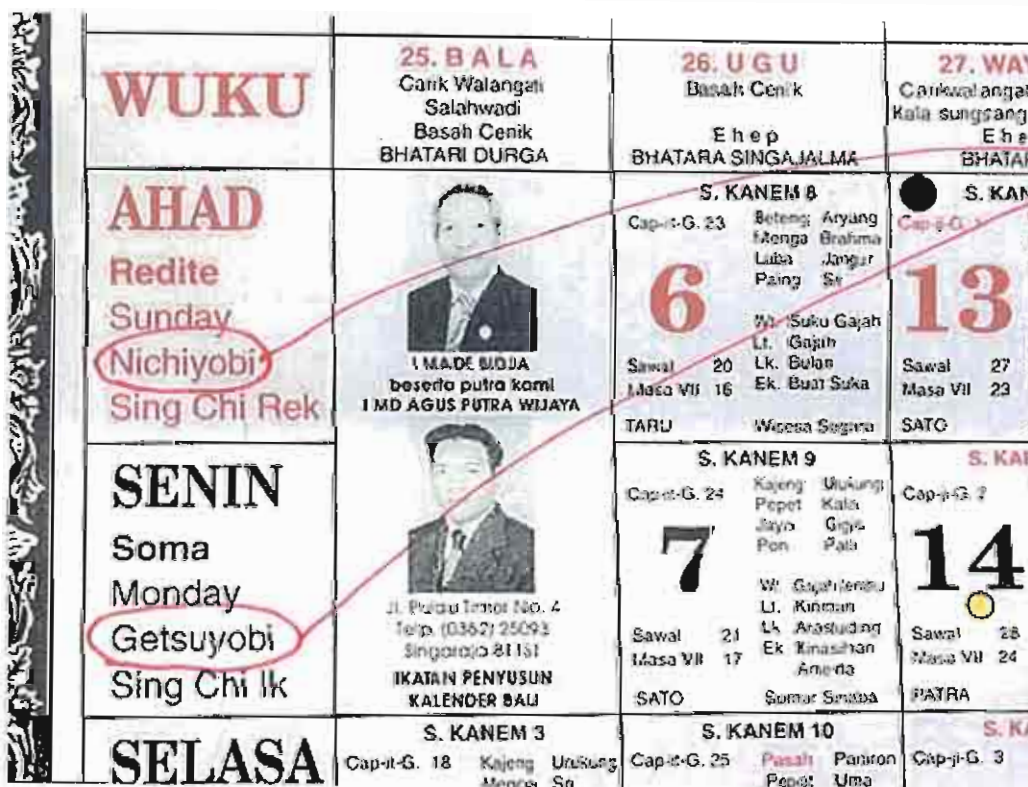 WUKU
25. BALA
Carik Walangati
Salahwadi
Basah Cenik
BHATARI DURGA
26. UGU
Basah Cenik
Ehep
BHATARA SINGAJALMA
27.
Kala sungsang
AHAD
Redite
Sunday
Nichiyobi
Sing Chi Rek
I MADE BIDJA
beserta putra kami
I MD AGUS PUTRA WIJAYA
S. KANEM 8
Cap-it-G. 23
Beteng Aryang
Menga Brahma
Laba Jangur
Paing Sri
6
Wt. Suku Gajah
Lt. Gajah
Lk. Bulan
Ek. Buat Suka
Sawal 20
Masa VII 16
TARU Wisesa Segara
13
Sawal 27
Masa VII 23
SATO
SENIN
Soma
Monday
Getsuyobi
Sing Chi Ik
Jl. Pulau Timor No. 4
Telp. (0362) 25093
Singaraja 81151
IKATAN PENYUSUN
KALENDER BALI
S. KANEM 9
Cap-it-G. 24
Kajeng Urukung
Pepet Kala
Jaya Gigis
Pon Pala
7
Lt.
Lk.
Ek. Kinasihan
Amerta
Sawal 21
Masa VII 17
SATO Sumur Sinaba
Cap-ji-G. 2
14
Sawal 28
Masa VII 24
PATRA
SELASA
S. KANEM 3
Cap-it-G. 18 Kajeng Urukung
Menga Sri
S. KANEM 10
Cap-it-G. 25 Pasah Paniron
Pepet Uma
Cap-ji-G. 3